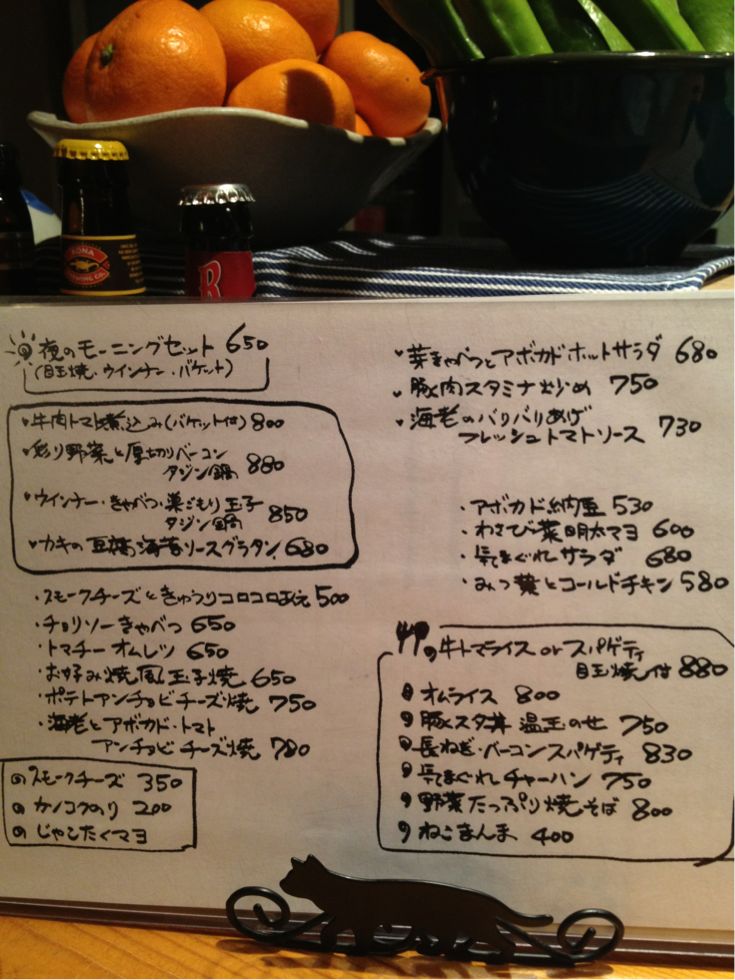 KONA
BREWING CO.
R
夜のモーニングセット 650
(目玉焼・ウインナー・バケット)
牛肉トマト煮込み(バケット付) 800
彩り野菜と厚切りベーコン
タジン鍋 880
ウインナー・きゃべつ・巣ごもり玉子
タジン鍋 850
カキの豆腐海苔ソースグラタン 680
・スモークチーズときゅうりコロコロ和え 500
・チョリソーきゃべつ 650
・トマチーオムレツ 650
・お好み焼風玉子焼 650
・ポテトアンチョビチーズ焼 750
・海老とアボカド・トマト
アンチョビチーズ焼 780
スモークチーズ 350
カノコのり 200
じゃこたくマヨ
芽きゃべつとアボカドホットサラダ 680
豚肉スタミナ炒め 750
海老のパリパリあげ
フレッシュトマトソース 730
・アボカド納豆 530
・わさび菜明太マヨ 600
・気まぐれサラダ 680
・みつ葉とコールドチキン 580
牛トマライス or スパゲティ
目玉焼付 880
オムライス 800
豚スタ丼 温玉のせ 750
長ねぎ・ベーコンスパゲティ 830
気まぐれチャーハン 750
野菜たっぷり焼そば 800
ねこまんま 400